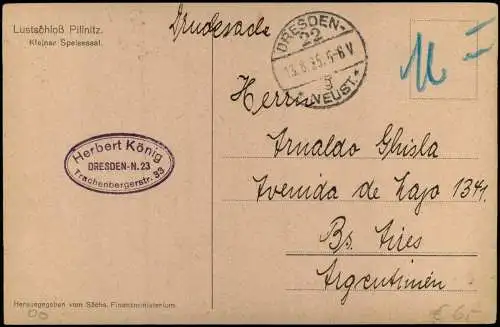 Lustschloß Pillnitz.
Kleiner Speisesaal.
Drucksache
DRESDEN-
22
13.8.35.5-6 V
g
*NEUST.*
Herrn
Arnaldo Ghisla
Avenida de Mayo 1341.
Bs. Aires
Argentinien
Herbert König
DRESDEN-N.23
Trachenbergerstr. 33
Herausgegeben vom Sächs. Finanzministerium.
€ 6,-